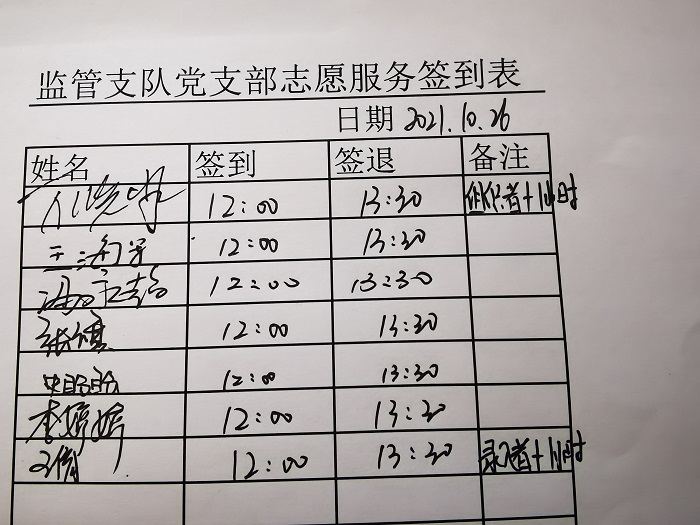 监管支队党支部志愿服务签到表
日期 2021.10.26
姓名 签到 签退 备注
12:00 13:30 组织者+1小时
王海军 12:00 13:30
12:00 13:30
张镇 12:00 13:30
12:00 13:30
李婷婷 12:00 13:30
12:00 13:30 录入者+1小时